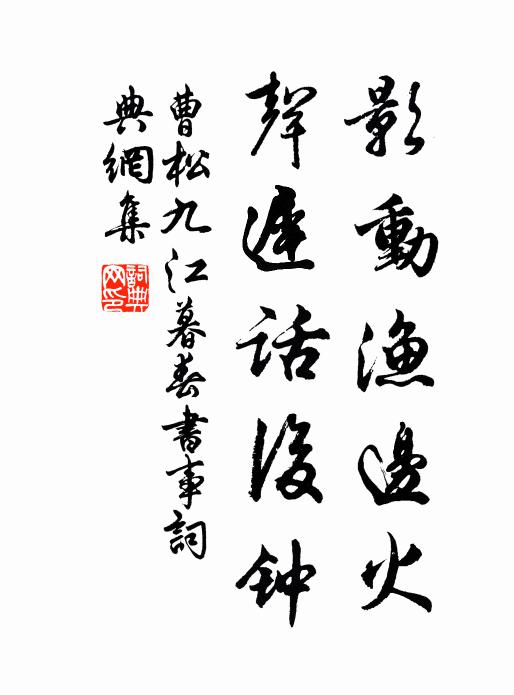 影動漁邊火
聲遲話後钟
曹松九江暮春書事詞
典網集
詞典
网印